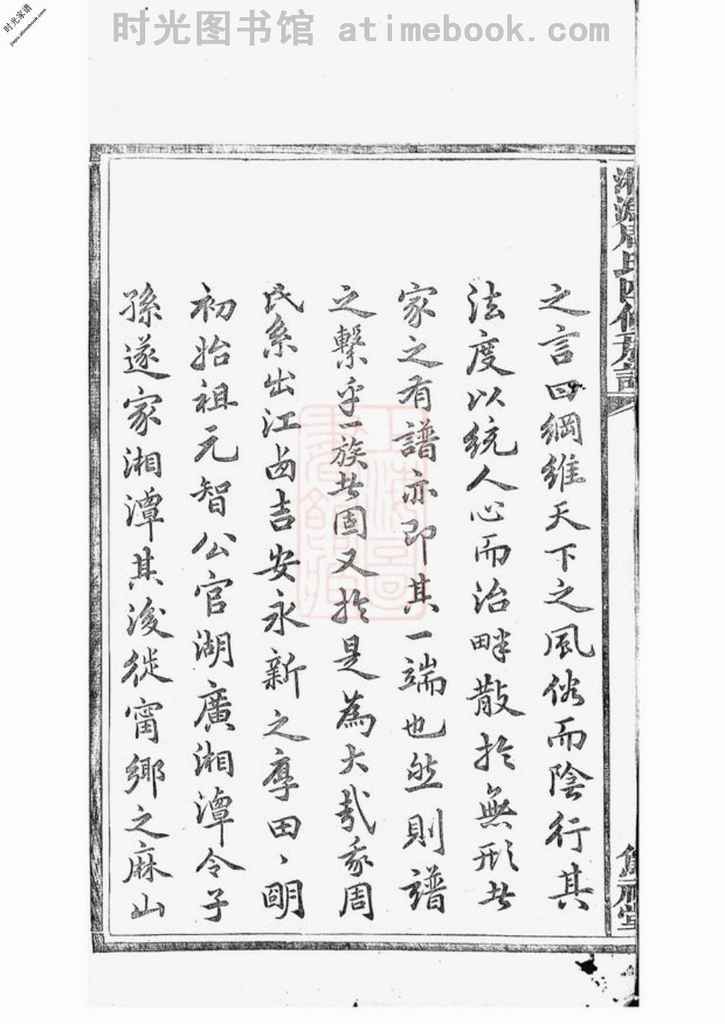 时光图书馆 atimebook.com
时光家谱
之言曰綱維天下之風俗而陰行其
法度以統人心而治畔散於無形者
家之有譜亦即其一端也然則譜
之繫乎一族者固又於是為大哉我周
氏系出江西吉安永新之厚田、明
初始祖元智公官湖廣湘潭令子
孫遂家湘潭其後徙甯鄉之麻山
周氏四修族譜